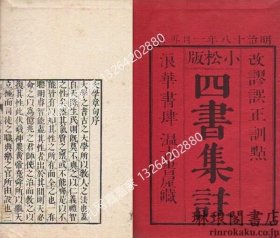 明治十八年一月
改謬誤正訓點
小松版
四書集註
浪華書肆
大學章句序
大學之書古之大學所以教人之法也蓋
自天降生民則既莫不與之以仁義禮智
之性矣然其氣質之稟或不能齊是以不
能皆有以知其性之所有而全之也一有
聰明睿智能盡其性者出於其閒則天必
命之以爲億兆之君師使之治而教之以
復其性此伏羲神農黃帝堯舜所以繼天
立極而司徒之職典樂之官所由設也
13264202880
琳琅閣書店
www.rinrokaku.co.jp